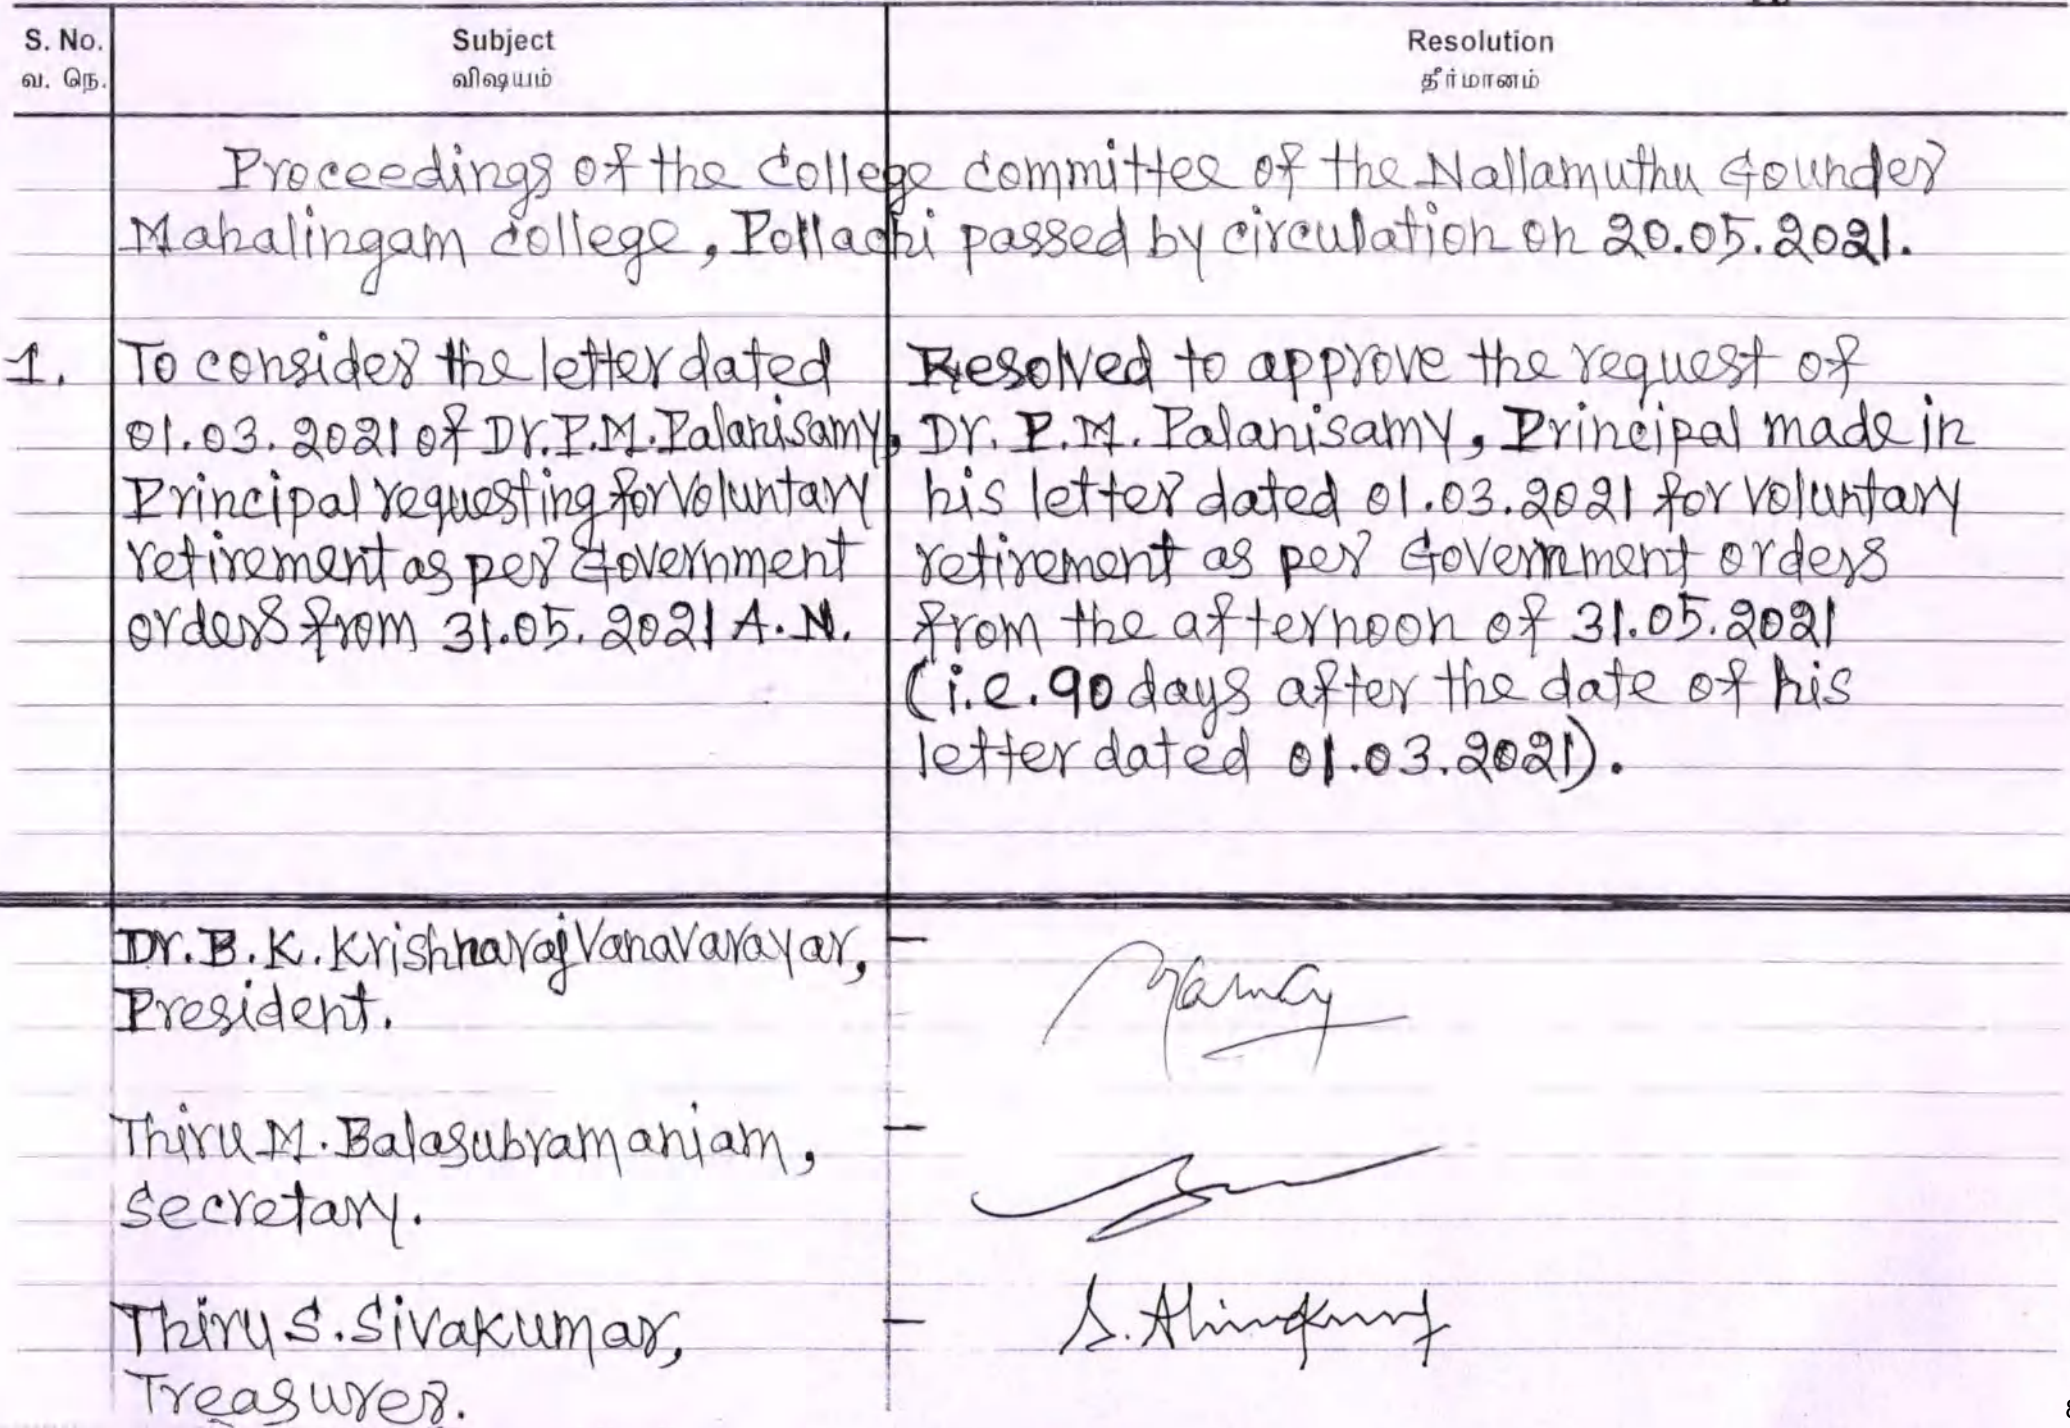 S. No. Subject Resolution
வ. நெ. விஷயம் தீர்மானம்
Proceedings of the College Committee of the Nallamuthu Gounder
Mahalingam College, Pollachi passed by circulation on 20.05.2021.
1. To consider the letter dated
01.03.2021 of Dr.P.M.Palanisamy,
Principal requesting for voluntary
retirement as per Government
orders from 31.05.2021 A.N.
Resolved to approve the request of
Dr. P.M. Palanisamy, Principal made in
his letter dated 01.03.2021 for voluntary
retirement as per Government orders
from the afternoon of 31.05.2021
(i.e. 90 days after the date of his
letter dated 01.03.2021).
Dr. B. K. Krishnaraj Vanavarayar, –
President.
Thiru M. Balasubramaniam, –
Secretary.
Thiru S. Sivakumar, –
Treasurer.